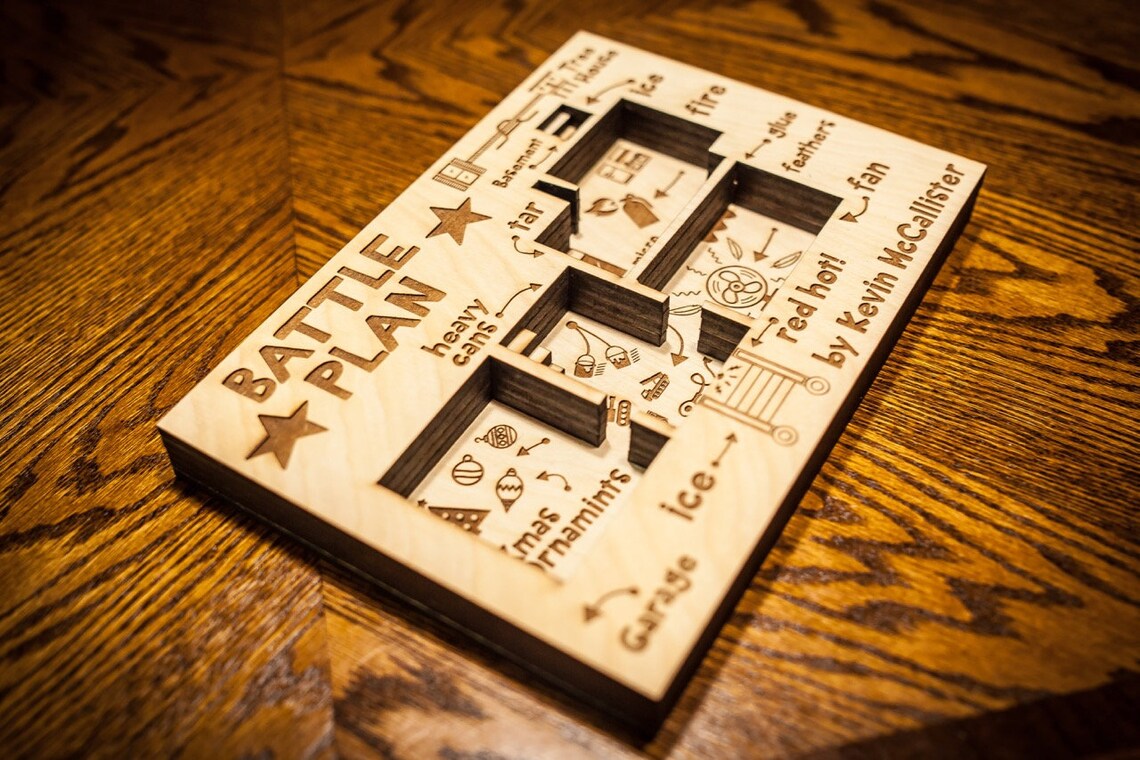 BATTLE
PLAN
Tree
House
Ice
fire
glue
feathers
fan
Basement
tar
heavy
cans
red hot!
by Kevin McCallister
Xmas
Ornamints
ice
Garage